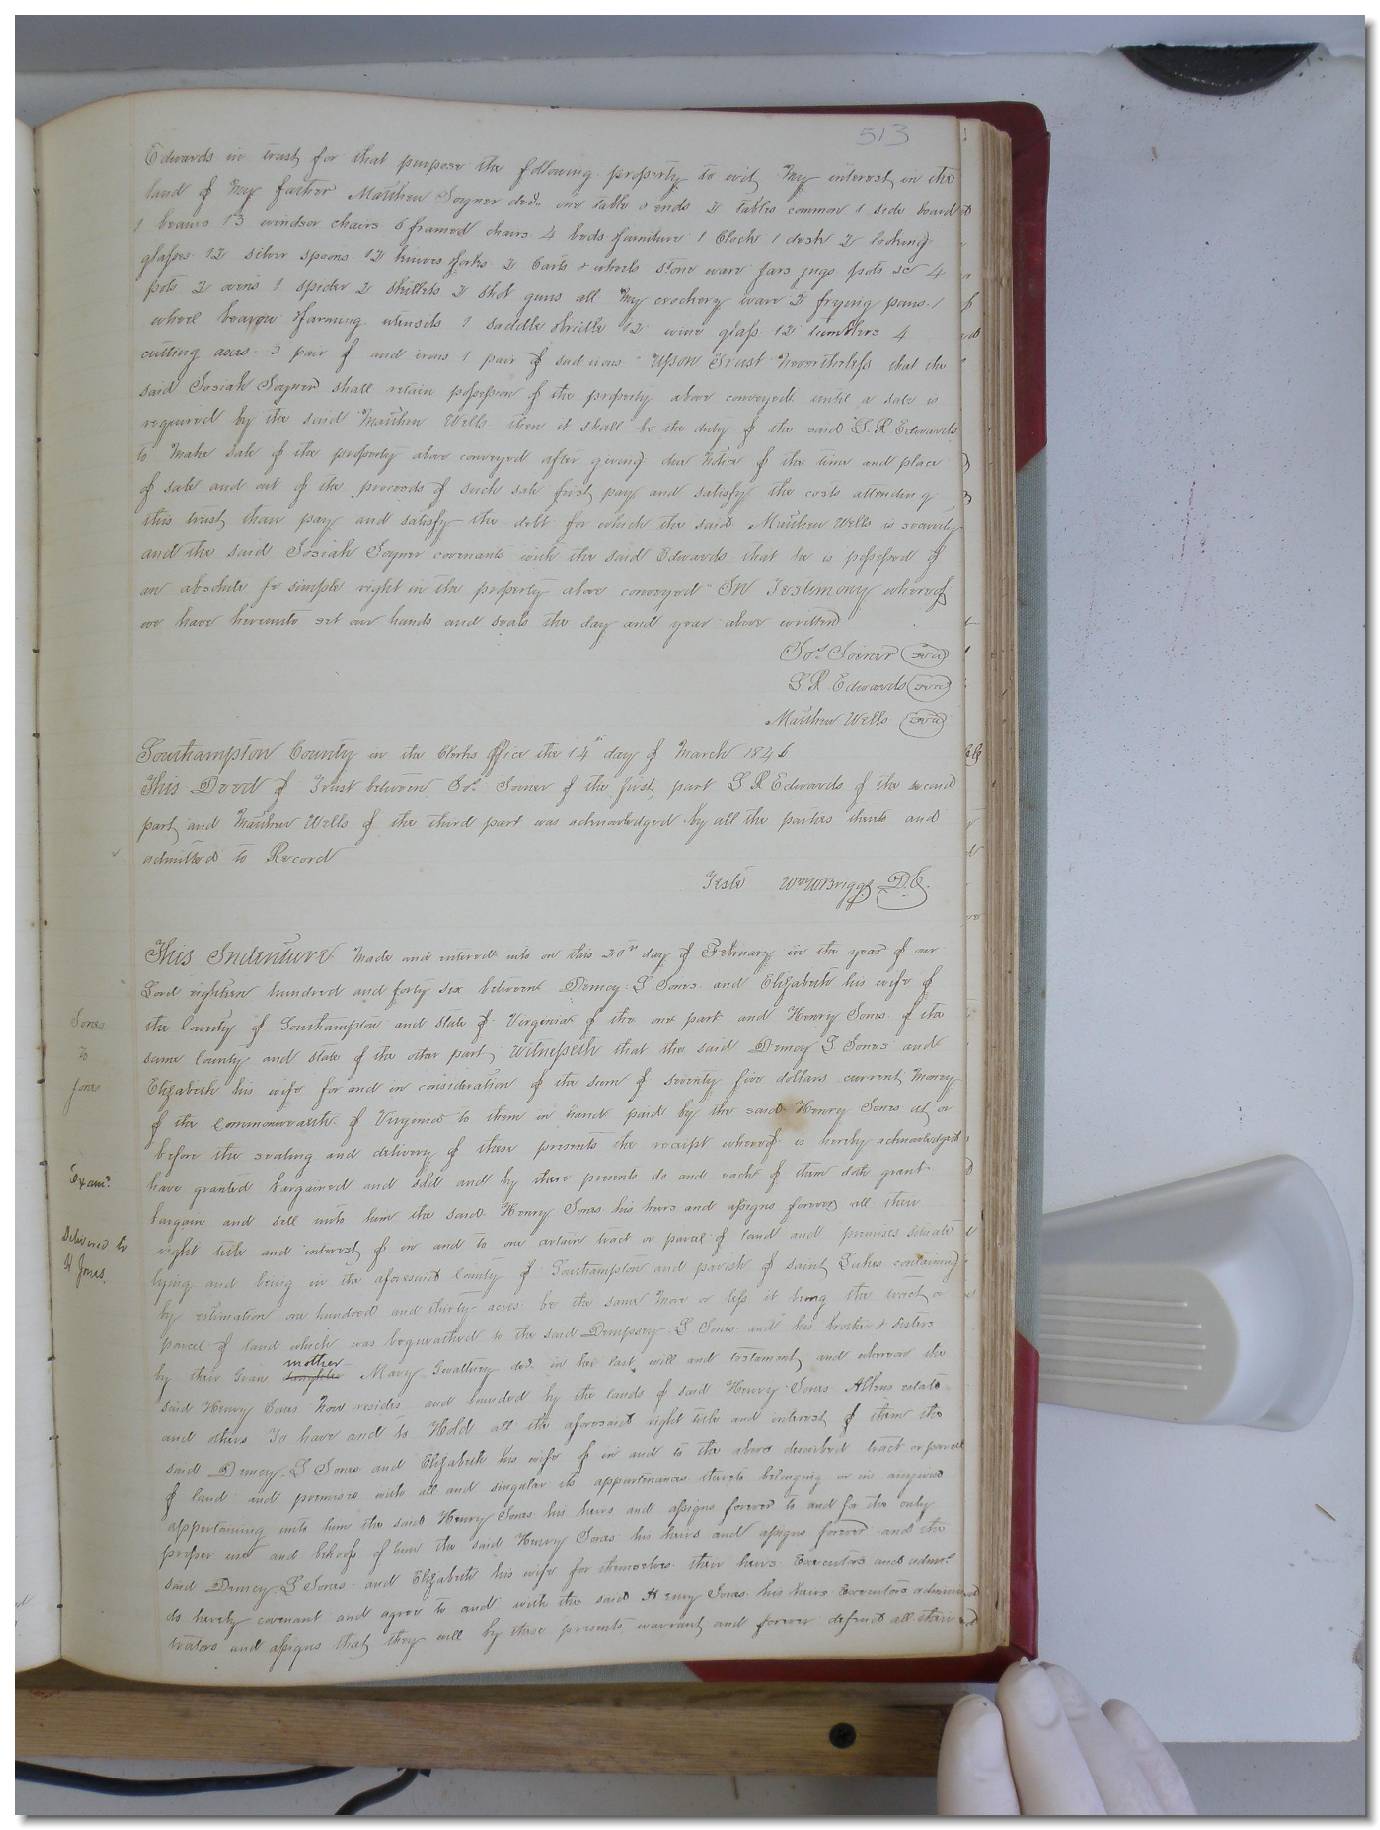 513
Edwards in trust for that purpose the following property to wit, My interest in the
land of My father Matthew Joyner decd. one table & ends 2 tables common 1 side board
13 windsor chairs 6 framed chairs 4 beds furniture 1 Clock 1 desk 2 looking
glasses 12 silver spoons 12 knives forks 2 Carts & wheels stone ware jars jugs pots 4
pots 2 ovens 1 spider 2 skillets 2 shot guns all My crockery ware 2 frying pans 1
wheel farming utensils 1 saddle bridle 12 wine glass 12 tumblers 4
cutting axes 3 pair of and irons 1 pair of sad irons Upon Trust Nevertheless that the
said Josiah Joyner shall retain possession of the property above conveyed until a sale is
required by the said Matthew Wells then it shall be the duty of the said G. R. Edwards
to Make sale of the property above conveyed after giving due Notice of the time and place
of sale and out of the proceeds of such sale first pay and satisfy the costs attending
this trust than pay and satisfy the debt for which the said Matthew Wells is security
and the said Josiah Joyner covenants with the said Edwards that he is possessed of
an absolute fee simple right in the property above conveyed In Testimony whereof
we have hereunto set our hands and seals the day and year above written
Jos. Joiner (seal)
G R Edwards (seal)
Matthew Wells (seal)
Southampton County in the Clerks Office the 14th day of March 1846
This Deed of Trust between Jos. Joiner of the first part G R Edwards of the second
part and Matthew Wells of the third part was acknowledged by all the parties thereto and
admitted to Record
Teste Wm W Briggs D.C.
This Indenture Made and entered into on this 20th day of February in the year of our
Lord eighteen hundred and forty six between Demcy S Jones and Elizabeth his wife of
Jones
the County of Southampton and State of Virginia of the one part and Henry Jones of the
to
same County and state of the other part, Witnesseth that the said Demcy S Jones and
Jones
Elizabeth his wife for and in consideration of the sum of seventy five dollars current Money
of the Commonwealth of Virginia to them in hand paid by the said Henry Jones at or
before the sealing and delivery of these presents the receipt whereof is hereby acknowledged
Examd.
have granted bargained and sold and by these presents do and each of them doth grant
bargain and sell unto him the said Henry Jones his heirs and assigns forever all their
Delivered to
right title and interest of in and to one certain tract or parcel of land and premises situate
H Jones
lying and being in the aforesaid County of Southampton and parish of saint Lukes containing
by estimation one hundred and thirty acres be the same More or less it being the tract or
parcel of land which was bequeathed to the said Dempsey S Jones and his brother & sisters
by their Gran mother Mary decd. in her last will and testament, and whereon the
said Henry Jones Now resides and bounded by the lands of said Henry Jones estate
and others To have and to Hold all the aforesaid right title and interest of them the
said Demcy S Jones and Elizabeth his wife of in and to the above described tract or parcel
of land and premises with all and singular its appurtenances thereto belonging or in anywise
appertaining unto him the said Henry Jones his heirs and assigns forever to and for the only
proper use and behoof of him the said Henry Jones his heirs and assigns forever and the
said Demcy S Jones and Elizabeth his wife for themselves their heirs Executors and admrs.
do hereby covenant and agree to and with the said Henry Jones his heirs Executors adminis
trators and assigns that they will by these presents warrant and forever defend all their